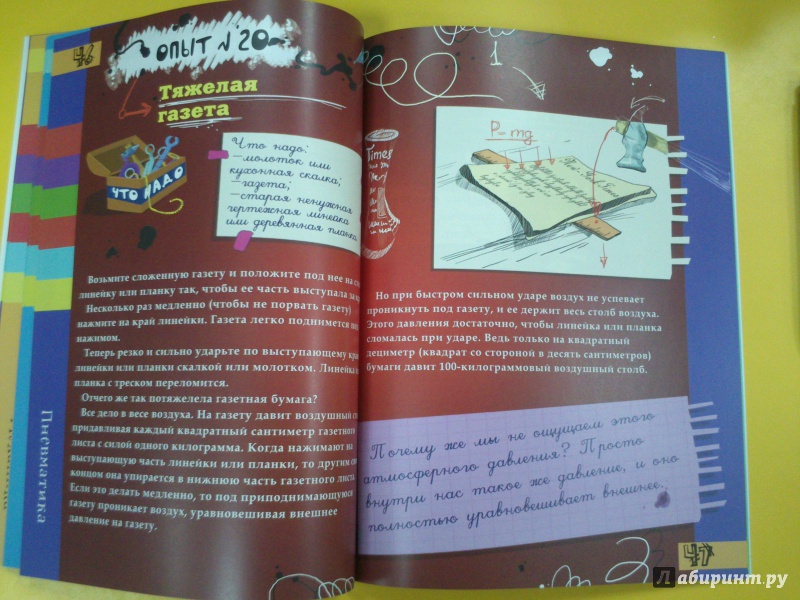 46
ОПЫТ N 20
Тяжелая
газета
Что надо:
—молоток или
кухонная скалка;
—газета;
—старая ненужная
чертежная линейка
или деревянная планка
ЧТО НАДО
Возьмите сложенную газету и положите под нее на
линейку или планку так, чтобы ее часть выступала за
Несколько раз медленно (чтобы не порвать газету)
нажмите на край линейки. Газета легко поднимется
нажимом.
Теперь резко и сильно ударьте по выступающему
линейки или планки скалкой или молотком. Линейка
планка с треском переломится.
Отчего же так потяжелела газетная бумага?
Все дело в весе воздуха. На газету давит воздушный
придавливая каждый квадратный сантиметр газетного
листа с силой одного килограмма. Когда нажимают на
выступающую часть линейки или планки, то другим
концом она упирается в нижнюю часть газетного листа.
Если это делать медленно, то под приподнимающуюся
газету проникает воздух, уравновешивая внешнее
давление на газету.
Пневматика
1
P=mg
Times
Но при быстром сильном ударе воздух не успевает
проникнуть под газету, и ее держит весь столб воздуха.
Этого давления достаточно, чтобы линейка или планка
сломалась при ударе. Ведь только на квадратный
дециметр (квадрат со стороной в десять сантиметров)
бумаги давит 100-килограммовый воздушный столб.
Почему же мы не ощущаем этого
атмосферного давления? Просто
внутри нас такое же давление, и оно
полностью уравновешивает внешнее.
47
Лабиринт.ру